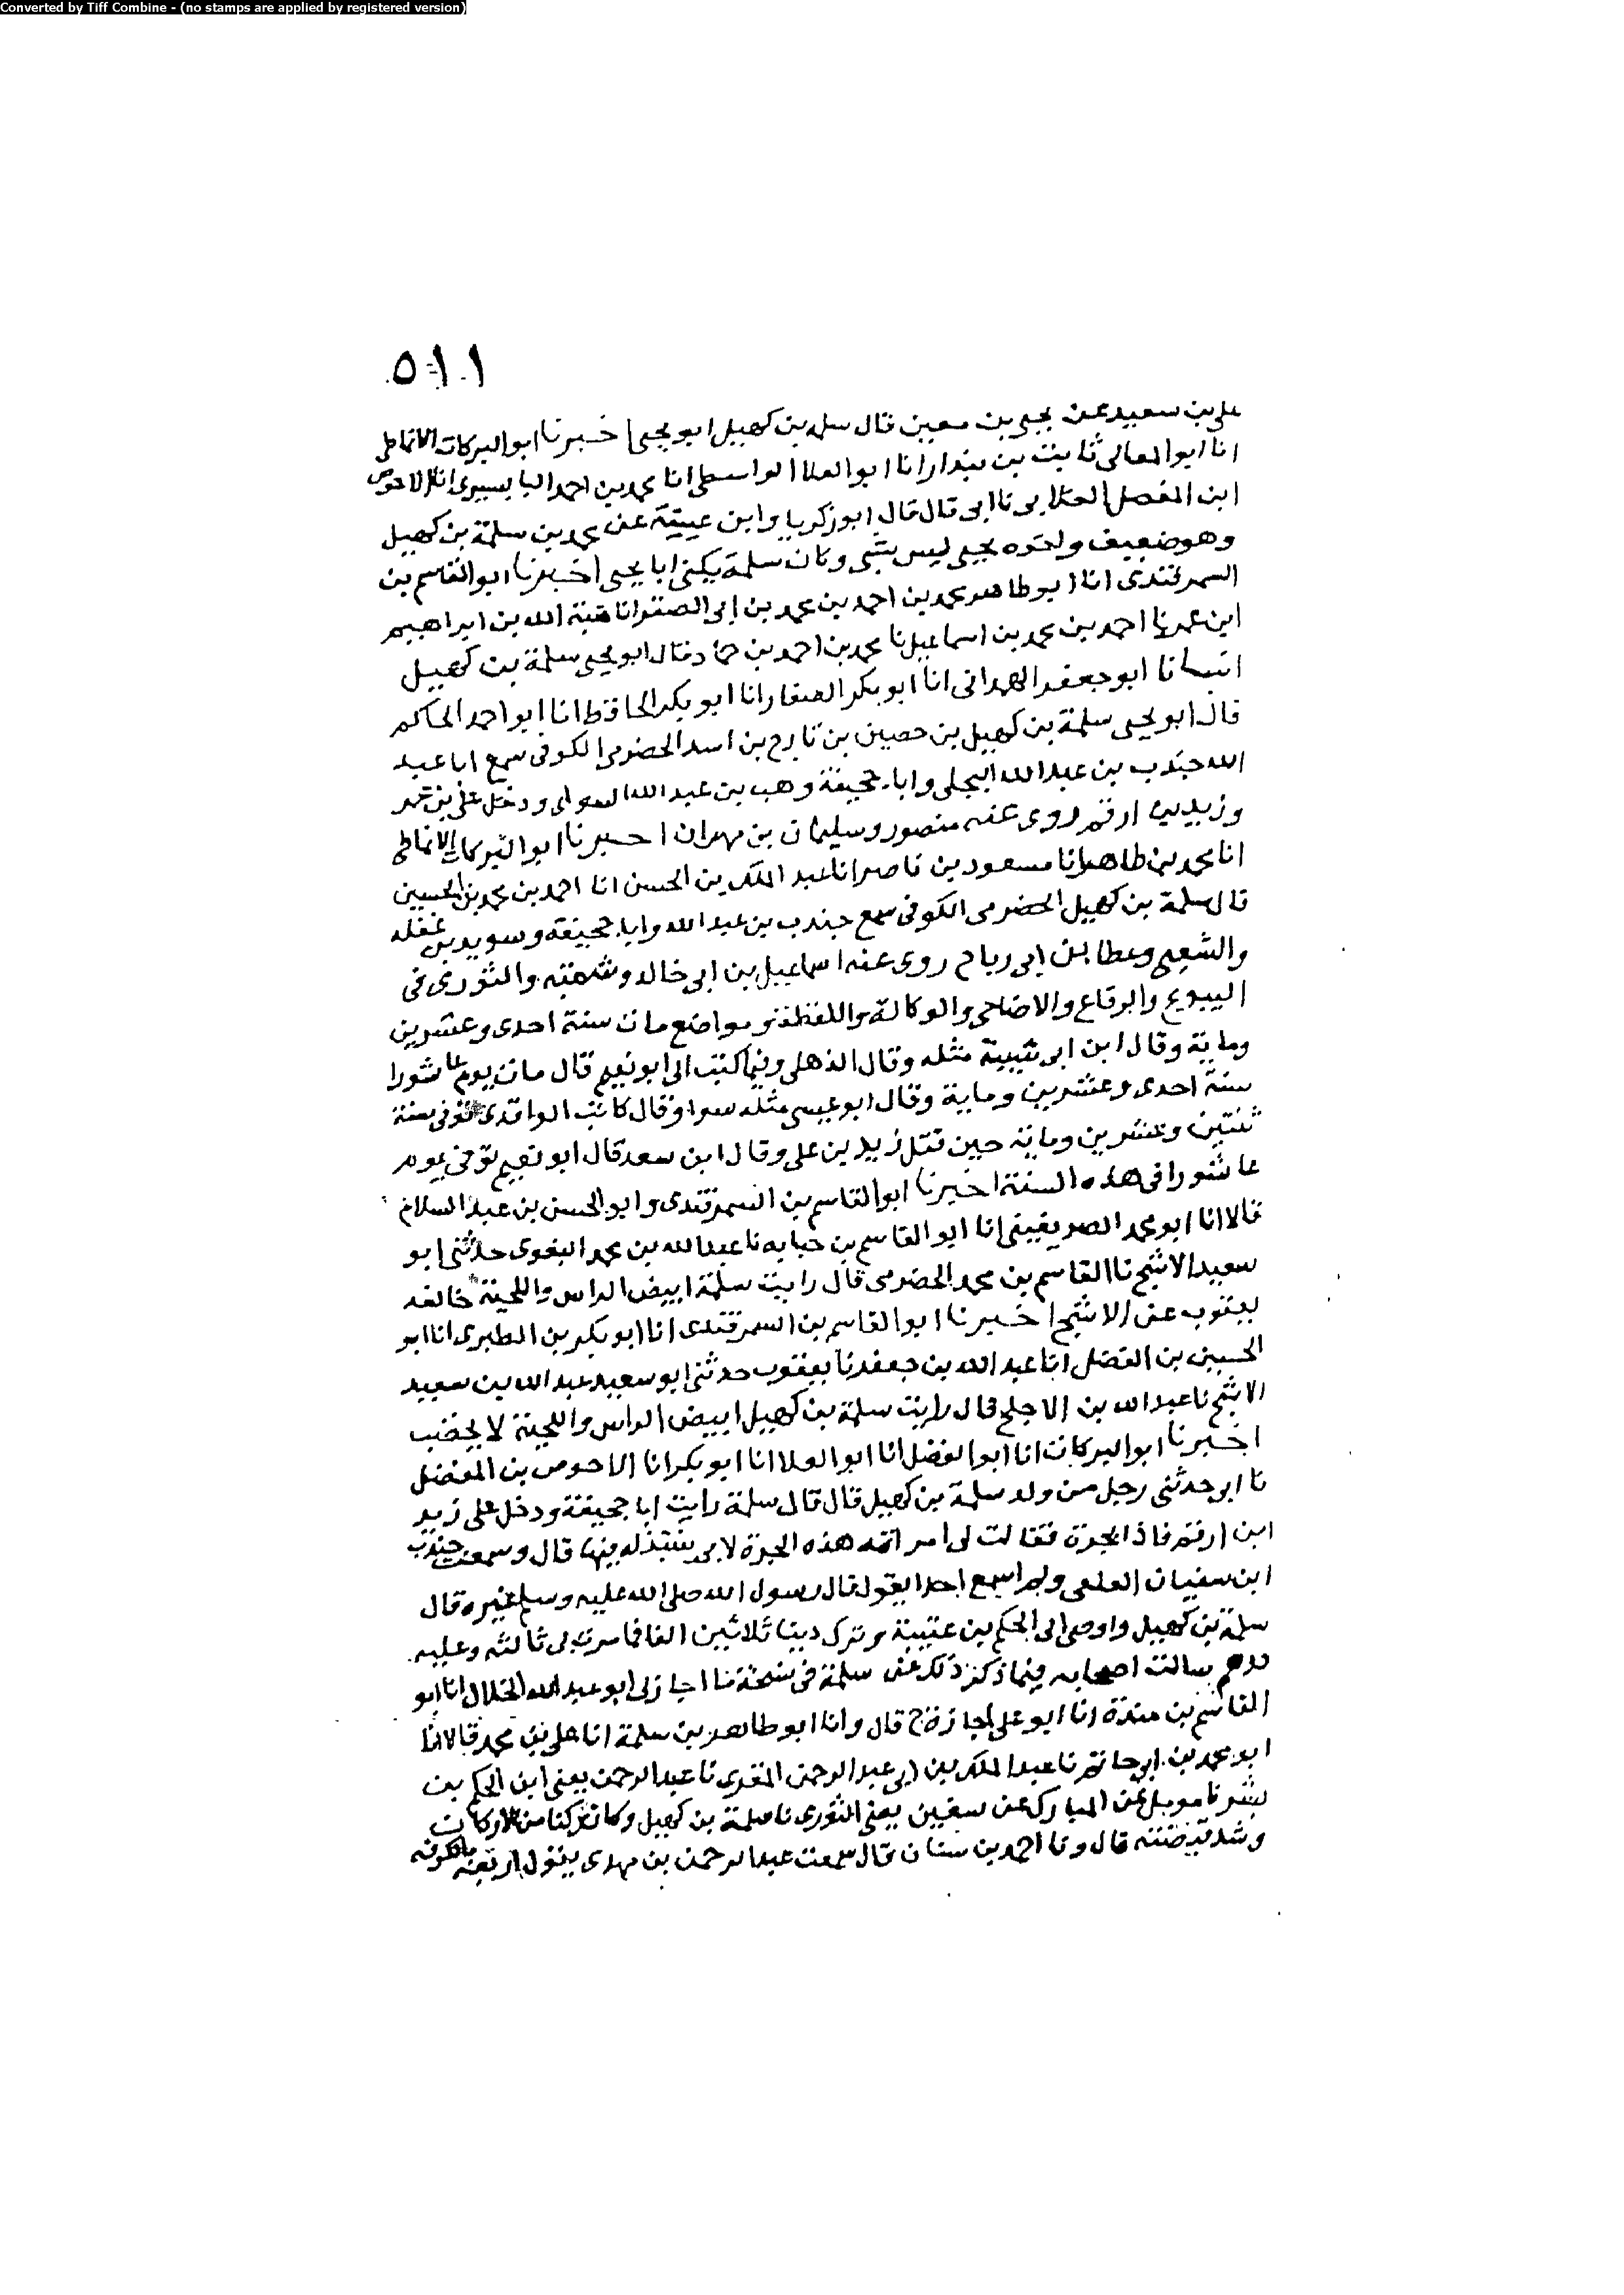 Converted by Tiff Combine - (no stamps are applied by registered version)
٥١١
علي بن سعيد عن يحيى بن معين قال سلمه بن كهيل ابو يحيى اخبرنا ابو البركات الانماطي
انا ابو المعالي ثابت بن بندار انا ابو العلا الواسطي انا محمد بن احمد البابسيري انا الاحوص
ابن المفضل الغلابي نا ابي قال قال ابو زكريا وابن عيينة عن محمد بن سلمة بن كهيل
وهو ضعيف واخوه يحيى ليس بشي وكان سلمة يكنى ابا يحيى اخبرنا ابو القاسم بن
السمرقندي انا ابو طاهر محمد بن احمد بن محمد بن ابي الصقر انا هبة الله بن ابراهيم
ابن عمر نا احمد بن محمد بن اسماعيل نا محمد بن احمد بن حماد قال ابو يحيى سلمة بن كهيل
انبانا ابو جعفر الهمداني انا ابو بكر الصفار انا ابو بكر الحافظ انا ابو احمد الحاكم
قال ابو يحيى سلمة بن كهيل بن حصين بن تارح بن اسد الحضرمي الكوفي سمع ابا عبد
الله جندب بن عبد الله البجلي وابا جحيفة وهب بن عبد الله السواي ودخل على بن عمر
وزيد بن ارقم روى عنه منصور وسليمان بن مهران اخبرنا ابو البركات الانماطي
انا محمد بن طاهر انا مسعود بن ناصر انا عبد الملك بن الحسن انا احمد بن محمد بن الحسين
قال سلمة بن كهيل الحضرمي الكوفي سمع جندب بن عبد الله وابا جحيفة وسويد بن غفله
والشعبي وعطا بن ابي رباح روى عنه اسماعيل بن ابي خالد وشعبة والثوري في
البيوع والرقاع والاضاحي والوكالة واللقطة مواضع مات سنة احدى وعشرين
وماية وقال ابن ابي شيبة مثله وقال الذهلي وفيما كتب الى ابو نعيم قال مات يوم عاشورا
سنة احدى وعشرين وماية وقال ابو عيسى مثله سوا وقال كاتب الواقدي توفي سنة
ثنتين وعشرين وماية حين قتل زيد بن علي وقال ابن سعد قال ابو نعيم توفي يوم
عاشورا في هذه السنة اخبرنا ابو القاسم بن السمرقندي وابو الحسن بن عبد السلام
قالا انا ابو محمد الصريفيني انا ابو القاسم بن حبابه نا عبد الله بن محمد البغوي حدثني ابو
سعيد الاشج نا القاسم بن محمد الحضرمي قال رايت سلمة ابيض الراس واللحية خالفه
يعقوب عن الاشج اخبرنا ابو القاسم بن السمرقندي انا ابو بكر بن الطبري انا ابو
الحسين بن الفضل انا عبد الله بن جعفر نا يعقوب حدثني ابو سعيد عبد الله بن سعيد
الاشج نا عبد الله بن الاجلح قال رايت سلمة بن كهيل ابيض الراس واللحية لا يخضب
اخبرنا ابو البركات انا ابو الفضل انا ابو العلا انا ابو بكر انا الاحوص بن المفضل
نا ابي حدثني رجل من ولد سلمة بن كهيل قال قال سلمة رايت ابا جحيفة ودخل على زيد
ابن ارقم فاذا بجرة فقالت لي امراته هذه الجرة لابي ينتبذ له فيها قال وسمعت جندب
ابن سفيان العلقي ولم اسمع احدا يقول قال رسول الله صلى الله عليه وسلم غيره قال
سلمة بن كهيل واوصى الى الحكم بن عتيبة وترك دينا ثلاثين الفا فامرت لي ثالثه وعليه
سالت اصحابه فيما ذكر ذلك عن سلمة في نسخة ما اجاز لي ابو عبد الله الخلال انا ابو
القاسم بن مندة انا ابو علي اجازة ح قال وانا ابو طاهر بن سلمة انا علي بن محمد قالا انا
ابو محمد بن ابي حاتم نا عبد الملك بن ابي عبد الرحمن المقري نا عبد الرحمن يعني ابن الحكم بن
بشر نا موبل عن المبارك عن سفين يعني الثوري نا سلمة بن كهيل وكان ركنا من الاركان
وشد قبضته قال ونا احمد بن سنان قال سمعت عبد الرحمن بن مهدي يقول اربعة بالكوفه